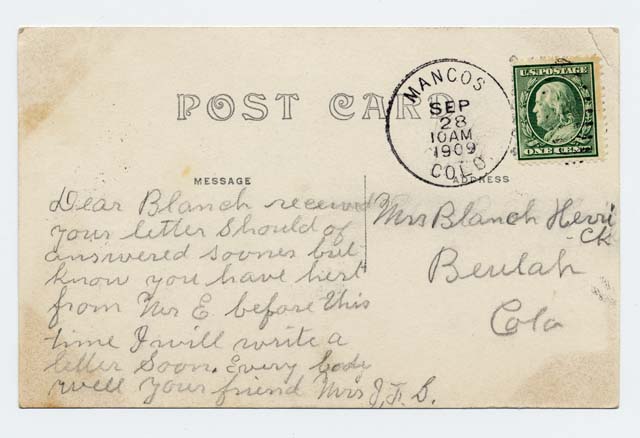 POST CARD
MANCOS
SEP
28
10AM
1909
COLO
U.S. POSTAGE
ONE CENT
MESSAGE
ADDRESS
Dear Blanch received
your letter Should of
answered sooner but
know you have hert
from Mr E before this
time I will write a
letter Soon. Every body
well your friend Mrs J. F. B.
Mrs Blanch Herri
-ck
Beulah
Colo